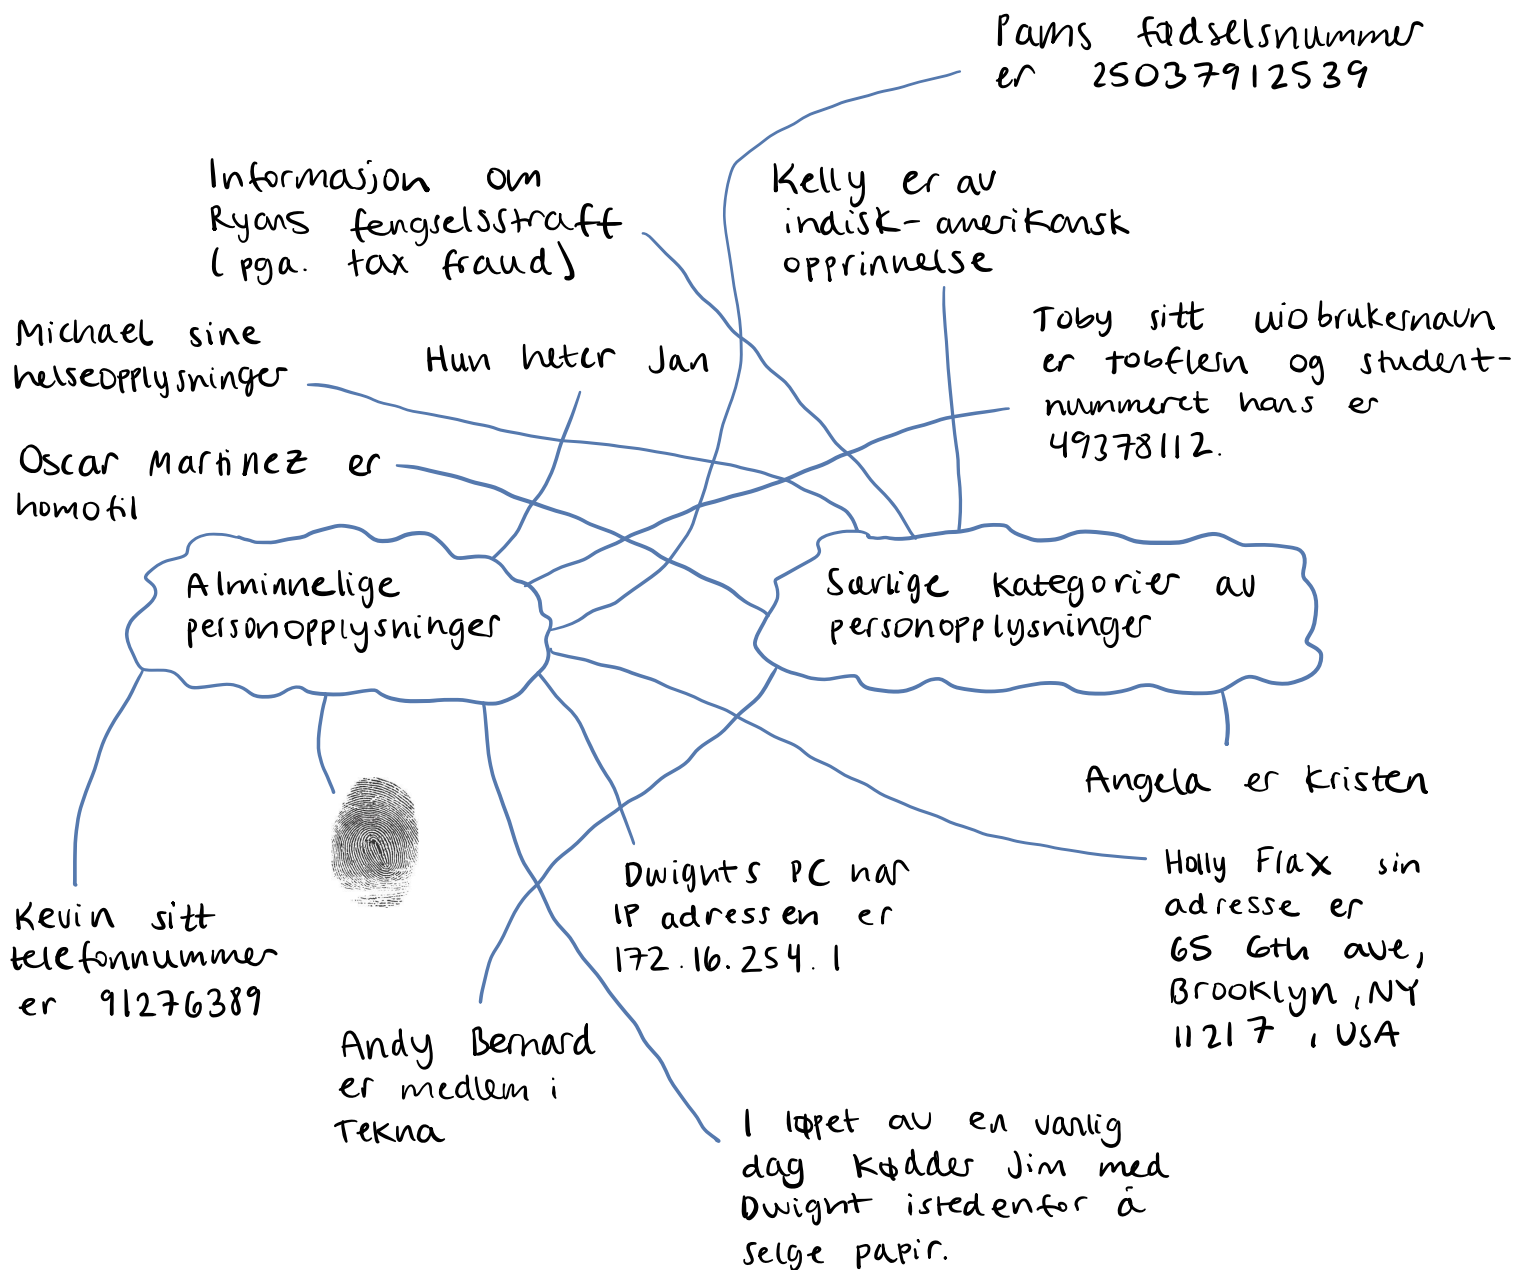 Pams fødselsnummer
er 25037912539
Informasjon om
Ryans fengselsstraff
(pga. tax fraud)
Kelly er av
indisk-amerikansk
opprinnelse
Michael sine
helseopplysninger
Hun heter Jan
Toby sitt uiobrukernavn
er tobflern og student-
nummeret hans er
49378112.
Oscar Martinez er
homofil
Alminnelige
personopplysninger
Særlige kategorier av
personopplysninger
Angela er kristen
Kevin sitt
telefonnummer
er 91276389
Dwights PC har
IP adressen er
172.16.254.1
Holly Flax sin
adresse er
65 6th ave,
Brooklyn, NY
11217, USA
Andy Bernard
er medlem i
Tekna
I løpet av en vanlig
dag kødder Jim med
Dwight istedenfor å
selge papir.